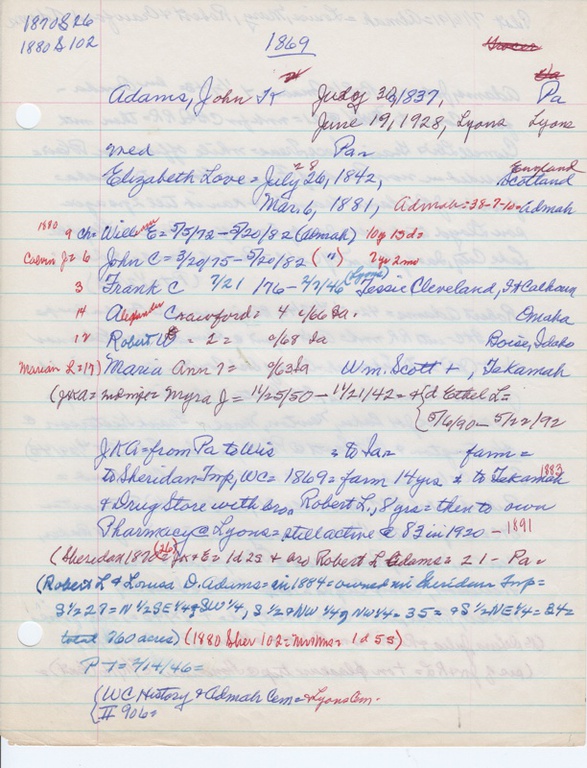 1870 S 26
1880 S 102
1869
Adams, John K July 30, 1837, Pa
June 19, 1928, Lyons Lyons
med Pa
Elizabeth Love = July 26, 1842, England Scotland
28
Mar. 6, 1881, Admah = 38-7-10 = Admah
1880
9 ch = Willo E = 5/5/72 - 5/20/82 (Admah) 10y 15d =
Calvin J = 6 John C = 3/20/75 - 5/20/82 ( " ) 7y 2mo
3 Frank C 7/21/76 - 2/7/46 (Lyons) Jessie Cleveland, Ft Calhoun
14 Alexander Crawford = 4 c/66 Ia. Omaha
12 Robert = 2 = c/68 Ia Boise, Idaho
Marian L = 17 Maria Ann 7 = c/63 Ia Wm. Scott + , Tekamah
(JKA = 2nd mg = Myra J = 11/25/50 - 11/21/42 = + {d Ethel L =
{5/6/90 - 5/22/92
JKA = from Pa to Wis = to Ia = farm =
to Sheridan Tmp, WC = 1869 = farm 14 yrs = to Tekamah 1883
& Drug Store with bro, Robert L., 8 yrs = then to own
Pharmacy @ Lyons = still active @ 83 in 1920 - 1891
(Sheridan 1870 (26) = JK + E = 1d 2s + bro Robert L Adams = 21 - Pa.
(Robert L & Louisa D. Adams = in 1884 = owned in Sheridan Tmp =
S 1/2 27 = N 1/2 SE 1/4 & SW 1/4, S 1/2 & NW 1/4 of NW 1/4 = 35 = + S 1/2 NE 1/4 = 34 =
total 760 acres) (1880 Sher 102 = Mr Mrs = 1d 5s)
P T = 7/14/46 =
(WC History & Admah Cem = & Lyons Cem.
(II 906 =